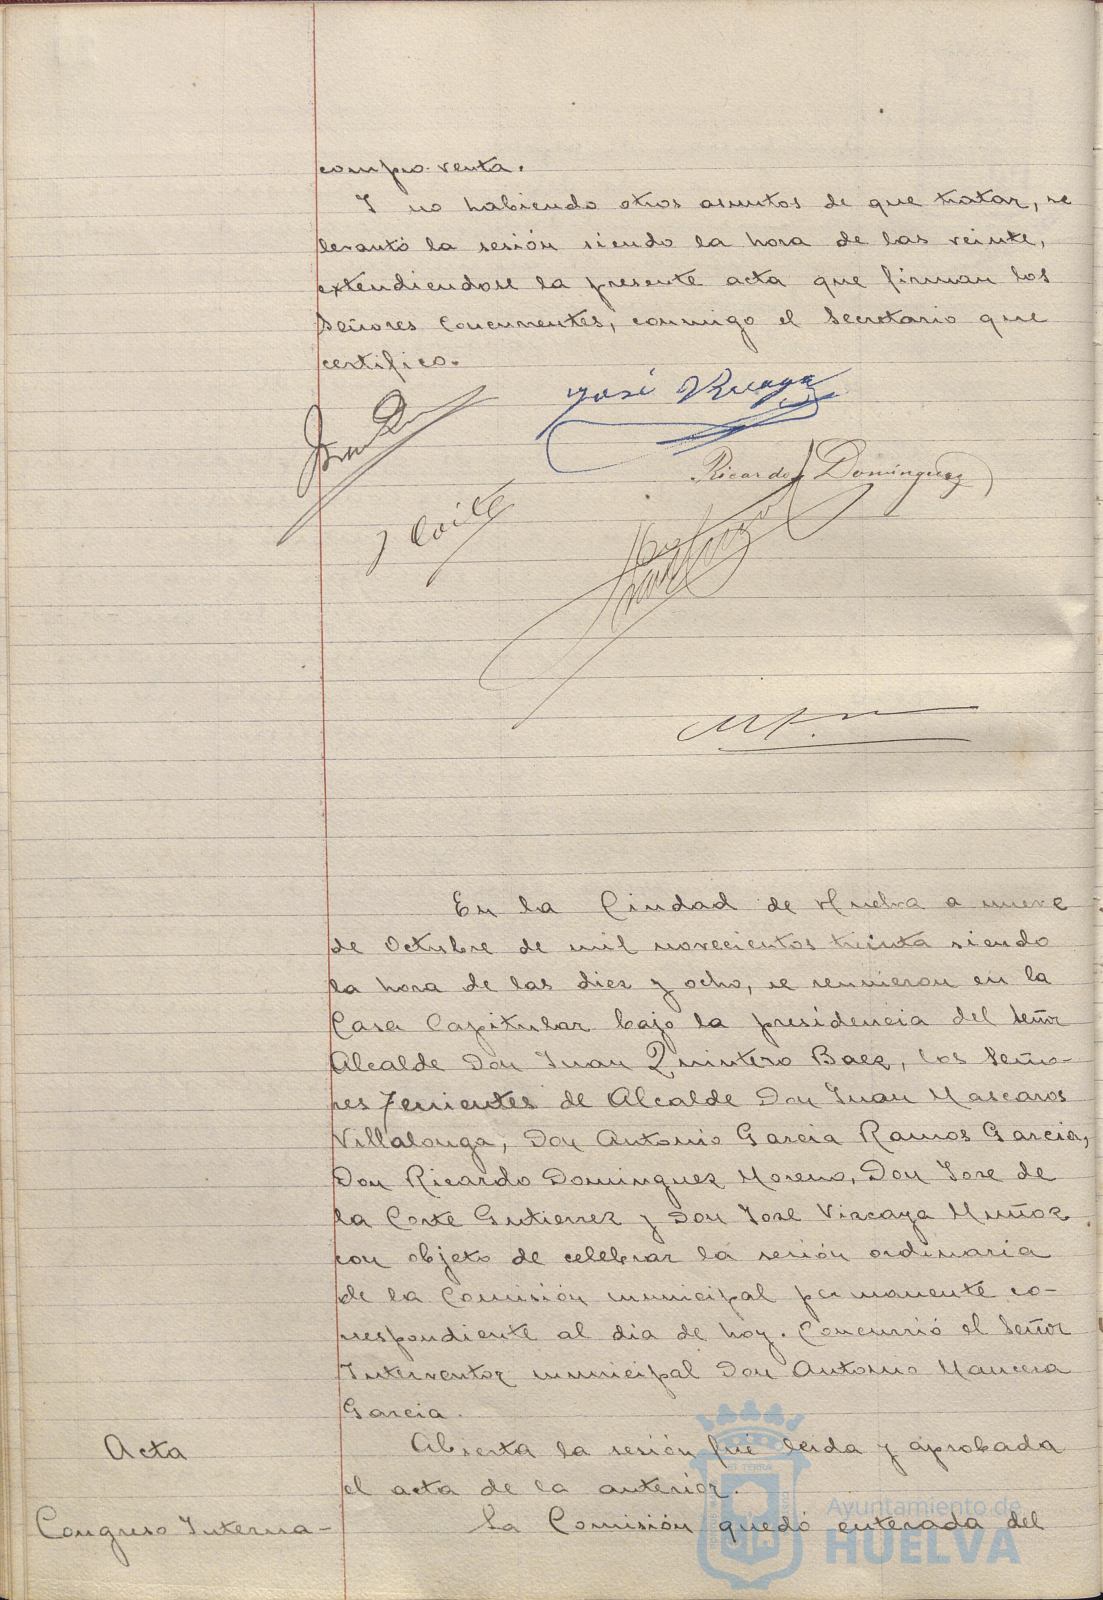 compro-venta.
Y no habiendo otros asuntos de que tratar, se
levantó la sesión siendo la hora de las veinte,
extendiendose la presente acta que firman los
Señores Concurrentes, conmigo el Secretario que
certifico.
José Vizcaya
Ricardo Dominguez
En la Ciudad de Huelva a nueve
de Octubre de mil novecientos treinta siendo
la hora de las diez y ocho, se reunieron en la
Casa Capitular bajo la presidencia del Señor
Alcalde Don Juan Quintero Baez, los Seño-
res Tenientes de Alcalde Don Juan Mascaros
Villalonga, Don Antonio Garcia Ramos Garcia,
Don Ricardo Dominguez Moreno, Don Jose de
la Corte Gutierrez y Don Jose Vizcaya Muñoz
con objeto de celebrar la sesión ordinaria
de la Comisión municipal permanente co-
rrespondiente al dia de hoy. Concurrió el Señor
Interventor municipal Don Antonio Mancera
Garcia.
Acta
Abierta la sesión fué leida y aprobada
el acta de la anterior.
Congreso Interna-
La Comisión quedó enterada del
Ayuntamiento de
HUELVA